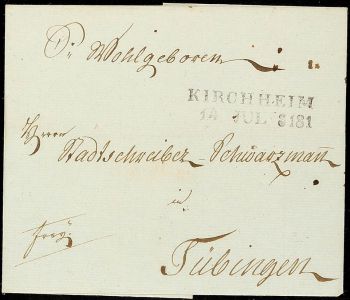 Sr Wohlgeboren
KIRCHHEIM
14 JUL 8181
Herrn
Stadtschreiber Schwarzman̄
in
frey.
Tübingen